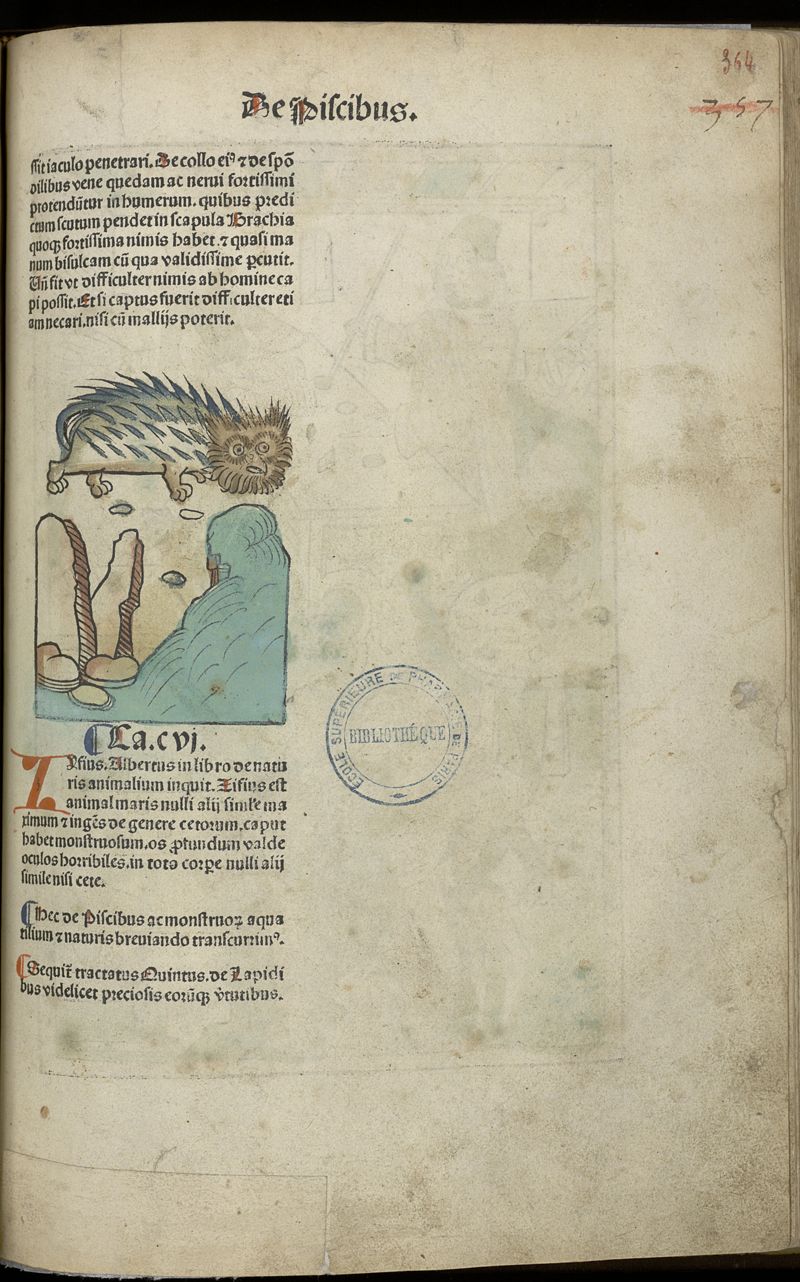 364
De Piscibus.
357
ssit iaculo penetrari. De collo eiꝰ ⁊ de spō
dilibus vene quedam ac nerui fortissimi
protendūtur in humerum. quibus predi
ctum scutum pendet in scapula Brachia
quoqꝫ fortissima nimis habet. ⁊ quasi ma
num bisulcam cū qua validissime ꝑcutit.
Uñ fit vt difficulter nimis ab homine ca
pi possit. Et si captus fuerit difficulter eti
am necari. nisi cū mallijs poterit.
Ca. cvj.
Zifius. Albertus in libro de natu
ris animalium inquit. Zifius est
animal maris nulli alij simile ma
ximum ⁊ ingēs de genere cetorum. caput
habet monstruosum. os ꝓfundum valde
oculos horribiles. in toto corpe nulli alij
simile nisi cete.
Hec de Piscibus ac monstruoꝝ aqua
tilium ⁊ naturis breuiando transcurrimꝰ.
Sequit̃ tractatus Quintus. de Lapidi
bus videlicet preciosis eorūqꝫ v̓tutibus.
ECOLE SUPÉRIEURE DE PHARMACIE DE PARIS
BIBLIOTHÉQUE